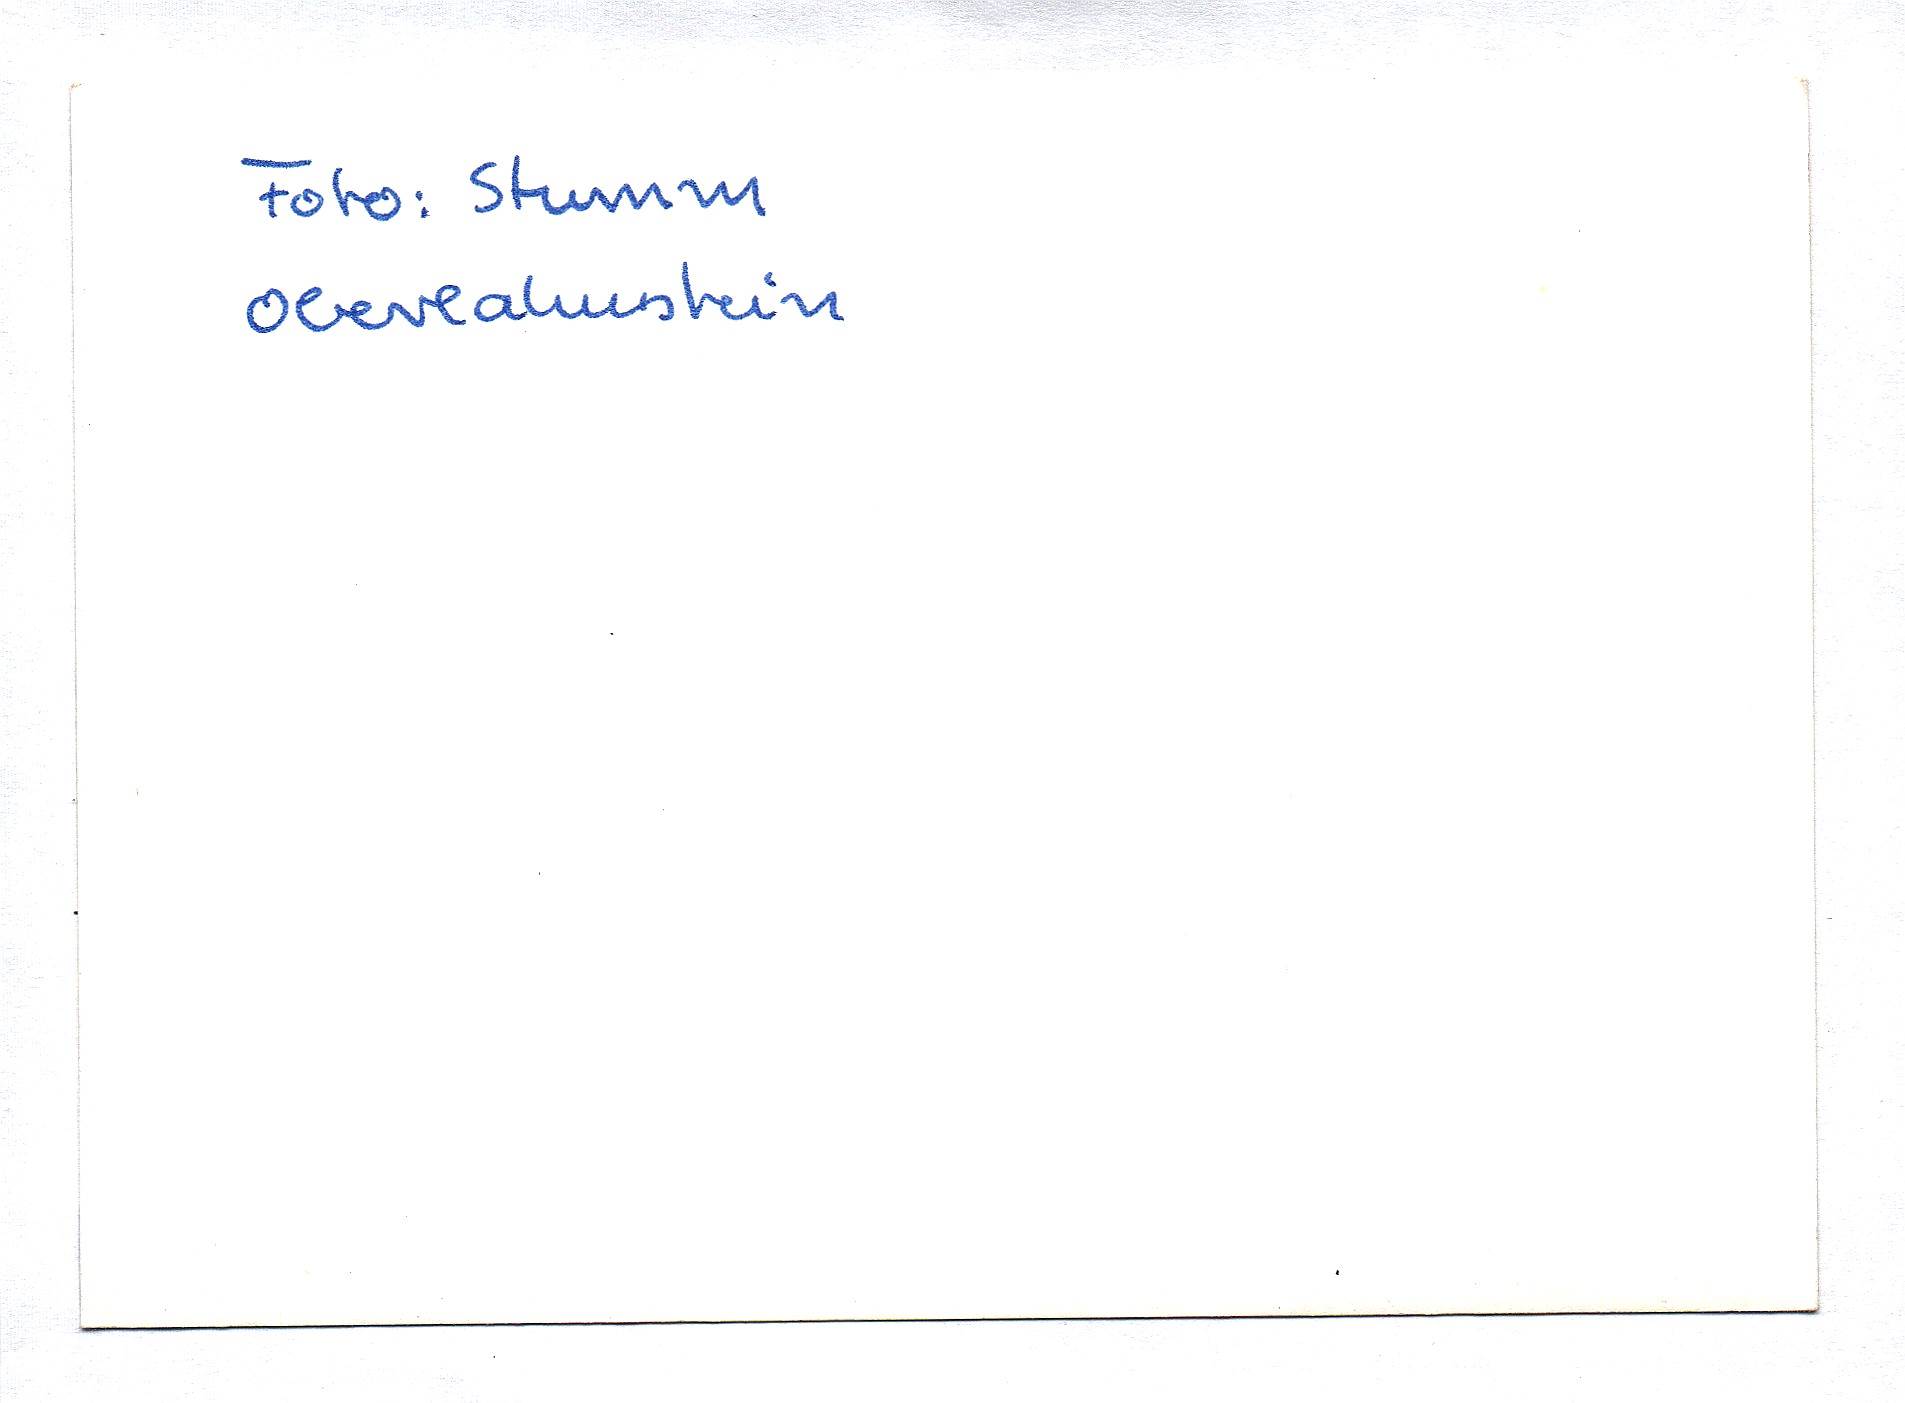 Foto: Stumm
Oberlahnstein